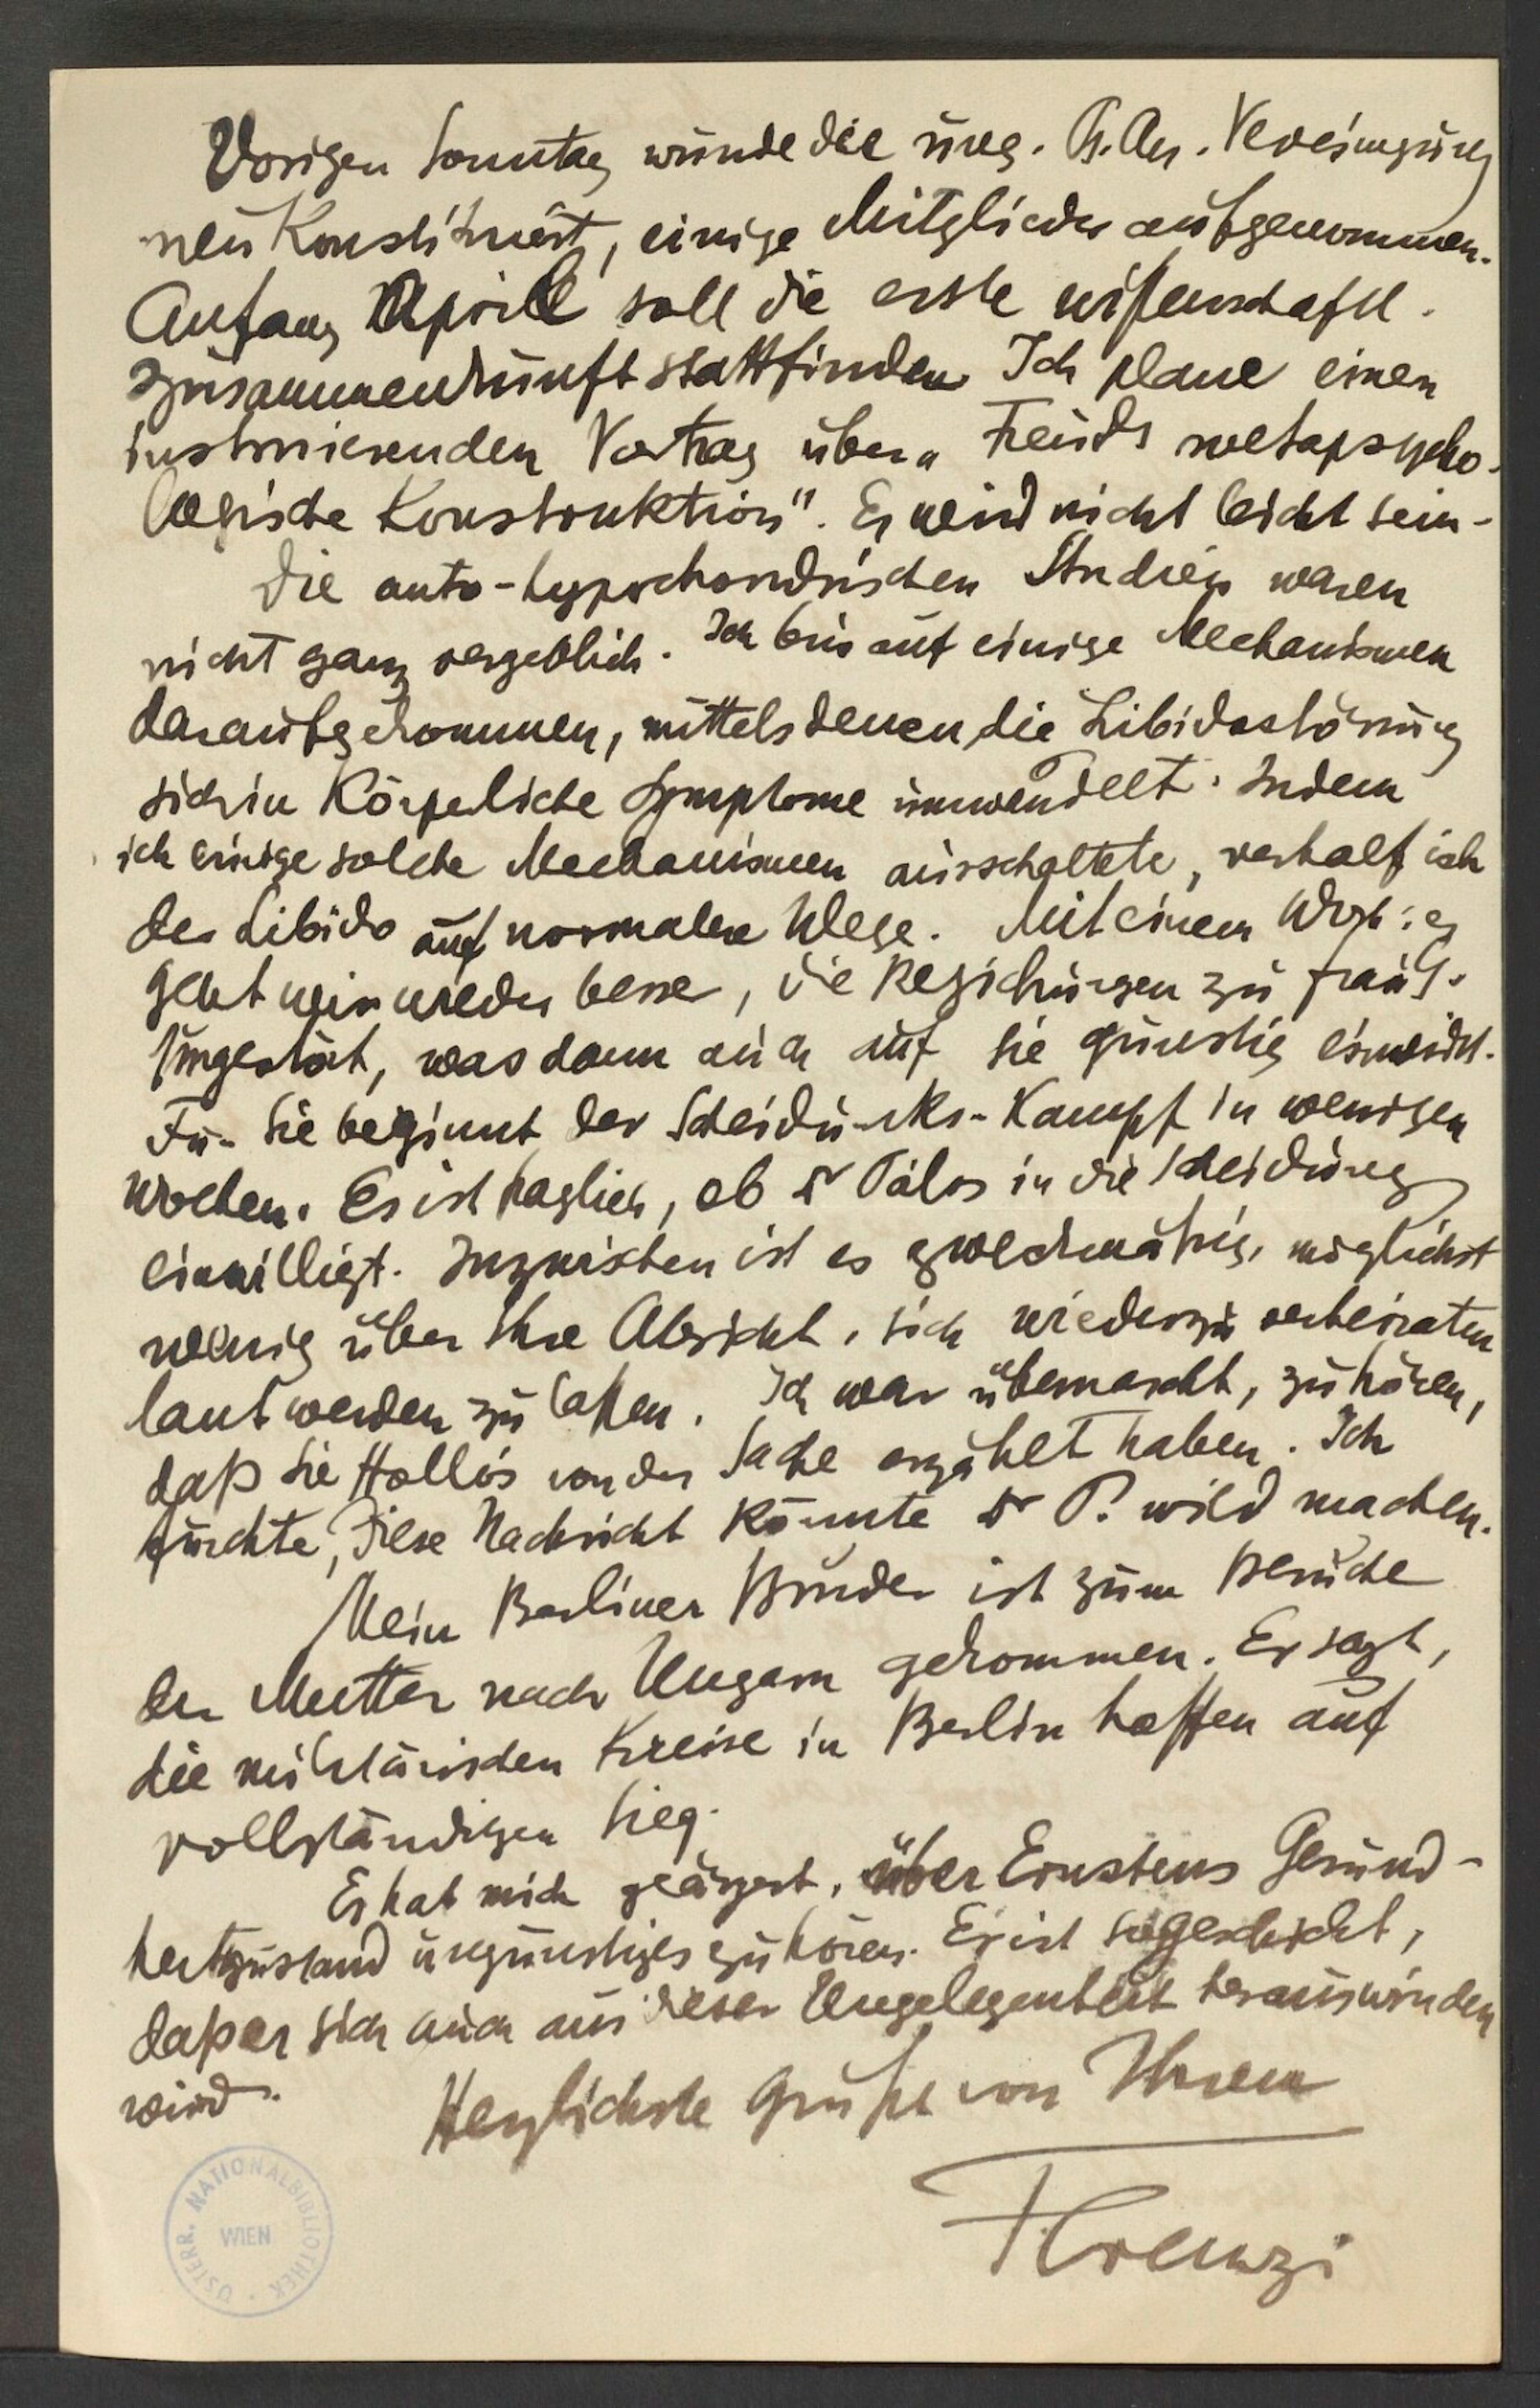 Vorigen Sonntag wurde die ung. Ps. An. Vereinigung
neu konstituiert, einige Mitglieder aufgenommen.
Anfang April soll die erste wissenschaftl.
Zusammenkunft stattfinden. Ich plane einen
instruierenden Vortrag über „Freuds metapsycho-
logische Konstruktion". Es wird nicht leicht sein -
Die auto-hypochondrischen Studien waren
nicht ganz vergeblich. Ich bin auf einige Mechanismen
daraufgekommen, mittels denen die Libidostörung
sich in körperliche Symptome umwandelt. Indem
ich einige solche Mechanismen ausschaltete, verhalf ich
der Libido auf normalere Wege. Mit einem Wort: es
geht mir wieder besser, die Beziehungen zu Frau G.
ungestört, was dann auch auf sie günstig einwirkt.
Für Sie beginnt der Scheidungs-Kampf in wenigen
Wochen. Es ist fraglich, ob Dr Pálos in die Scheidung
einwilligt. Inzwischen ist es zweckmäßig, möglichst
wenig über ihre Absicht, sich wieder zu verheiraten
laut werden zu lassen. Ich war überrascht, zu hören,
daß Sie Hollós von der Sache erzählt haben. Ich
fürchte, diese Nachricht könnte Dr P. wild machen.
Mein Berliner Bruder ist zum Besuche
der Mutter nach Ungarn gekommen. Er sagt,
die militärischen Kreise in Berlin hoffen auf
vollständigen Sieg.
Es hat mich geärgert, über Ernstens Gesund-
heitszustand ungünstiges zu hören. Er ist so geschickt,
daß er sich auch aus dieser Ungelegenheit herauswinden
wird.
Herzlichste Grüße von Ihrem
Ferenczi
ÖSTERR. NATIONALBIBLIOTHEK
WIEN